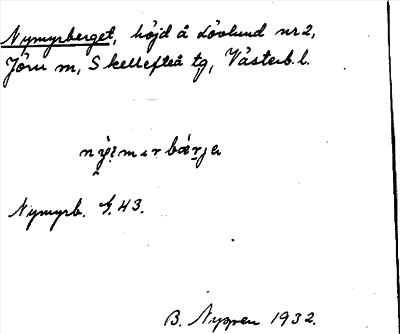 Nymyrberget, höjd å Lövlund nr 2,
Jörn sn, Skellefteå tg, Västerb. l.
Nymyrb. 43.
B. Nyman 1932.